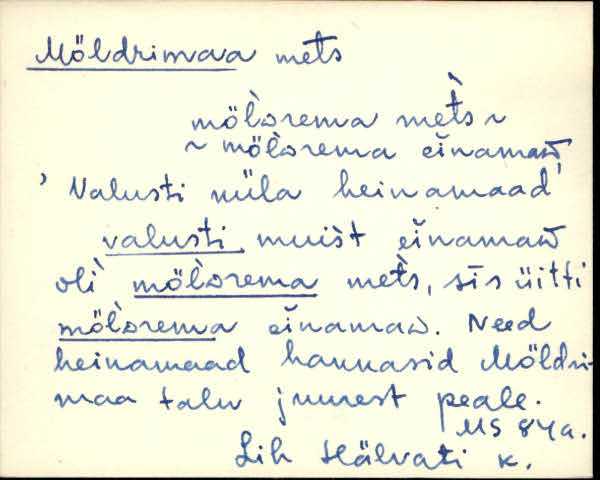 Möldrimaa mets
mö̀lorema mèts ~
~ mö̀lorema eìnamaa͞
' Valusti küla heinamaad '
valusti muist eìnamaa͞
olì mö̀lorema mèts, sīs üitti
mö̀lorema eìnamaa. Need
heinamaad hakkasid Möldri-
maa talu juurest peale.
MS 84a.
Lih Hälvati k.